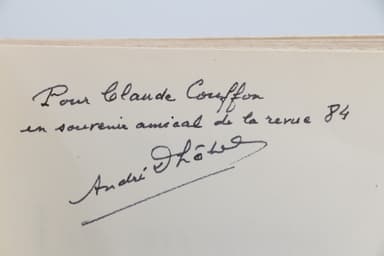 Pour Claude Couffon
en souvenir amical de la revue 84
André Dhôtel